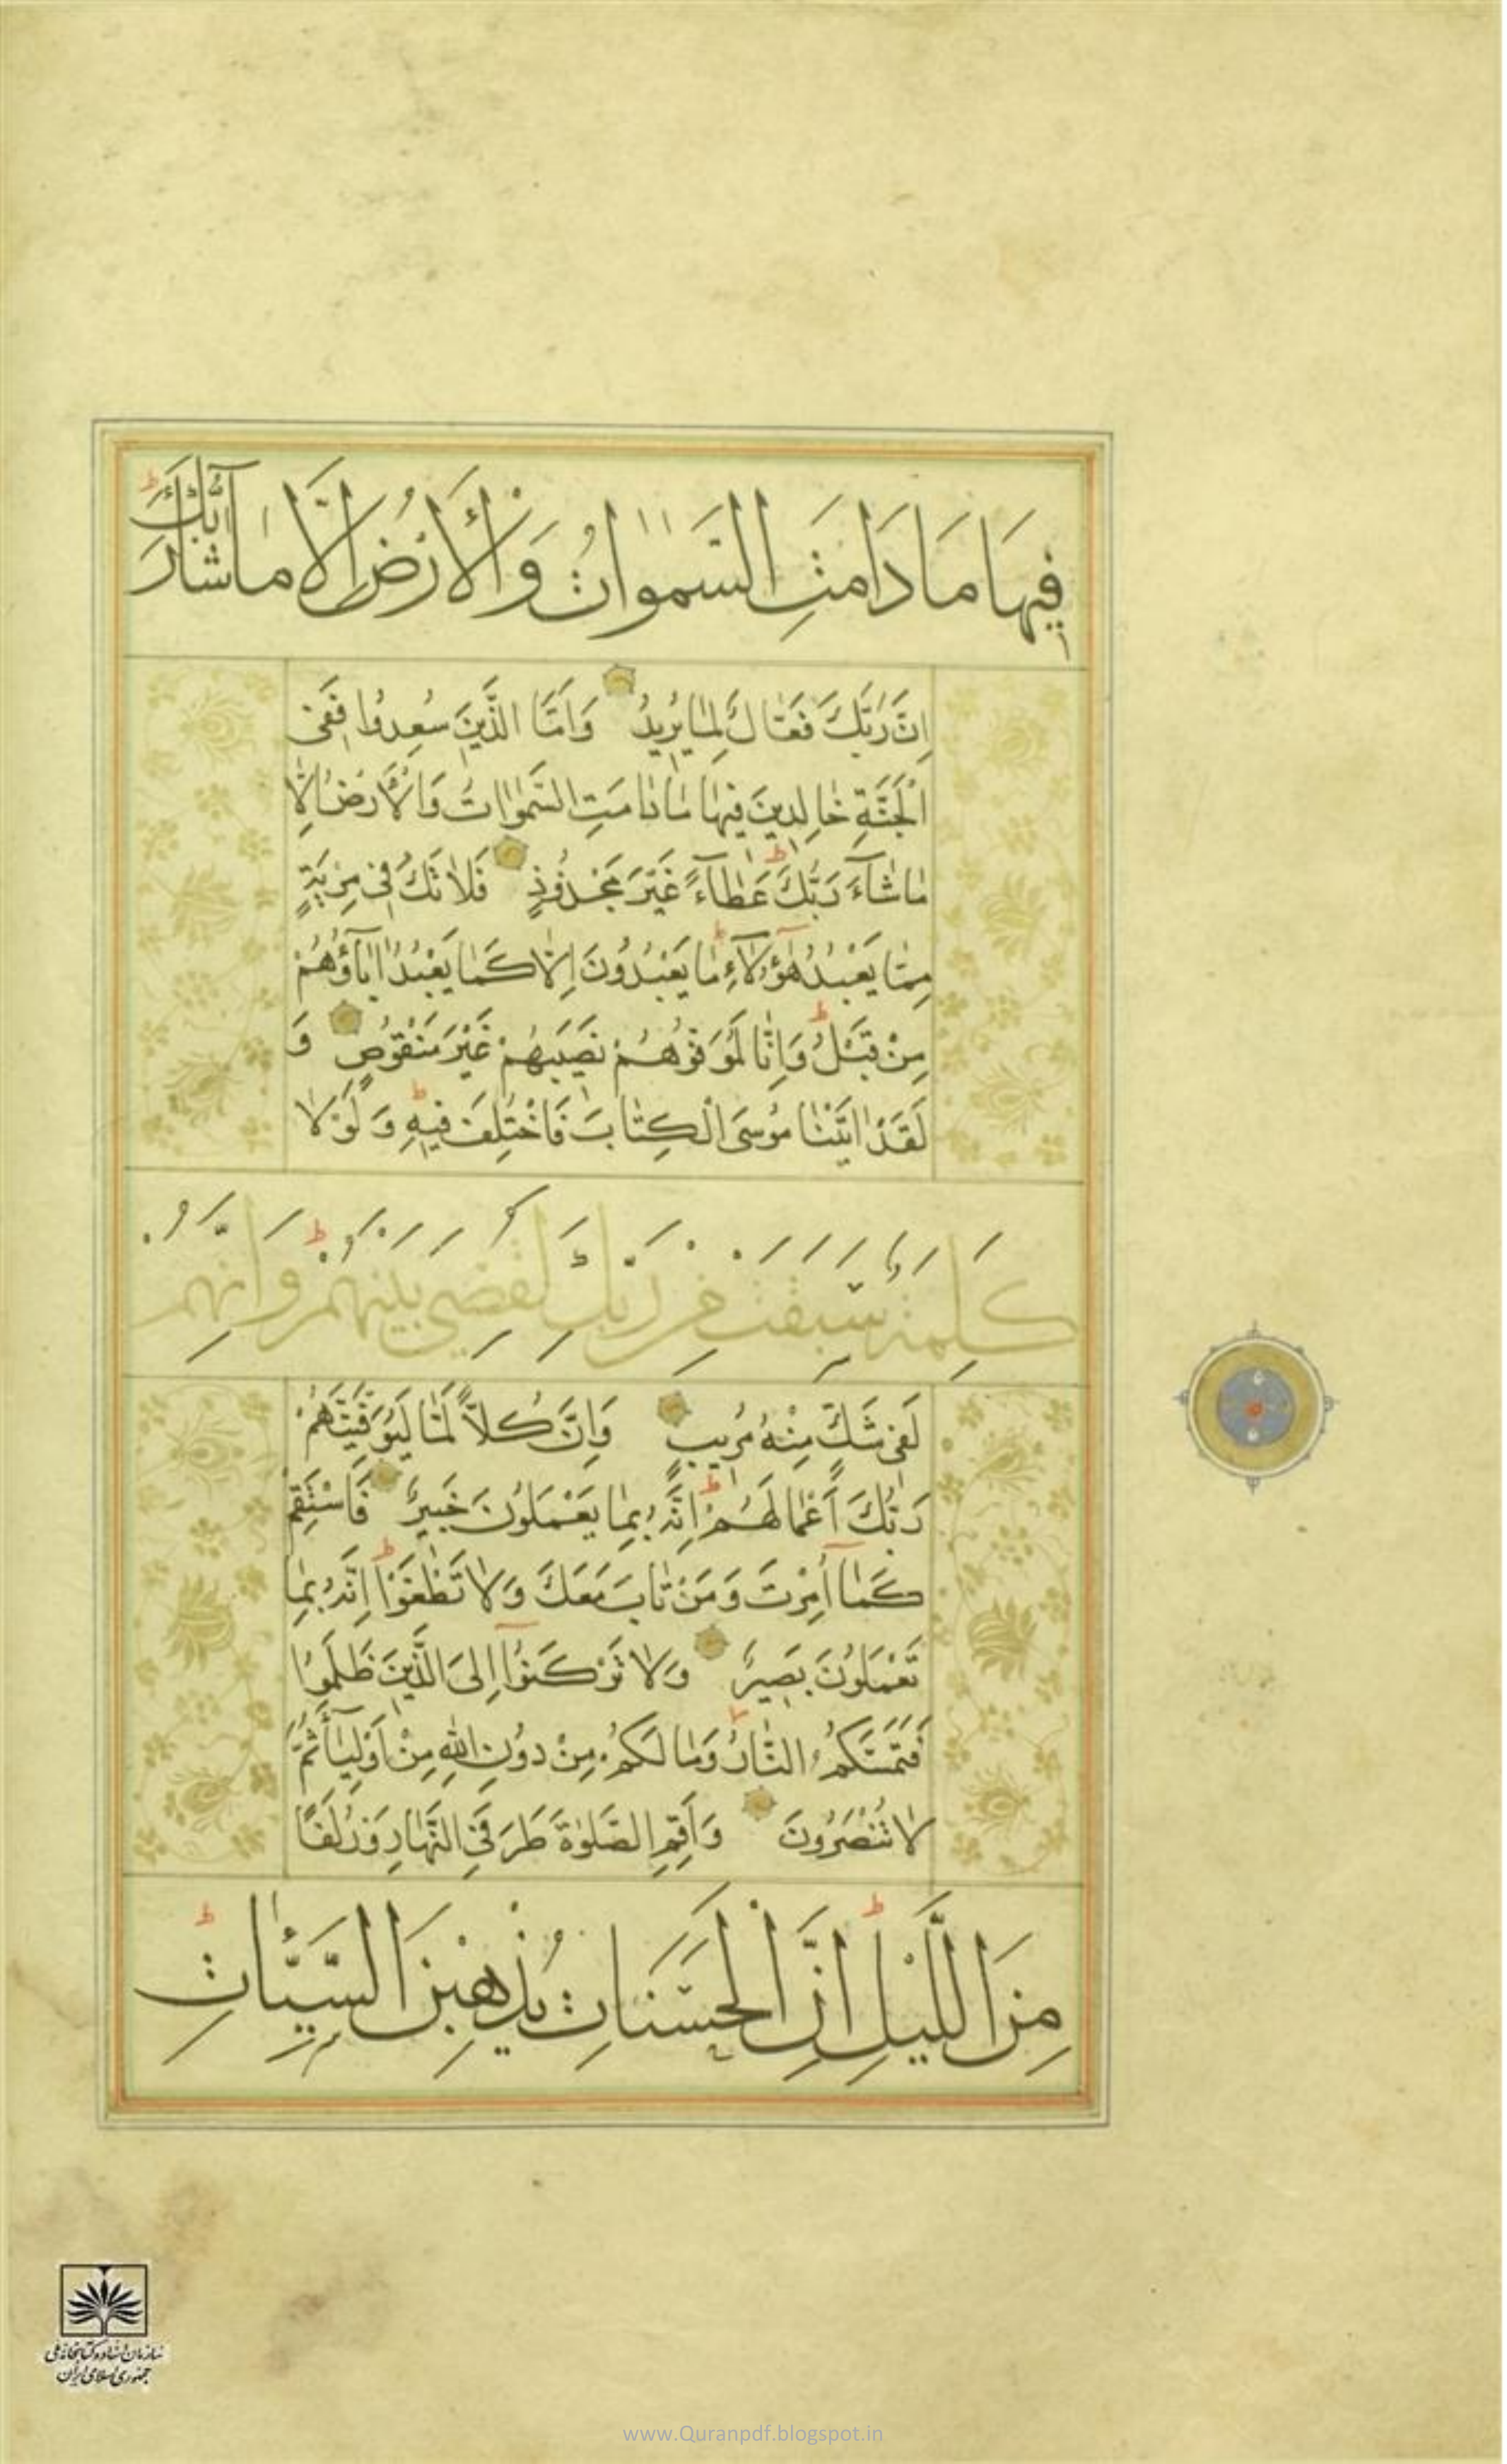 فِيهَا مَا دَامَتِ السَّمٰوَاتُ وَالْأَرْضُ إِلَّا مَا شَآءَ رَبُّكَ ط
اِنَّ رَبَّكَ فَعَّالٌ لِمَا يُرِيدُ وَاَمَّا الَّذِينَ سُعِدُوا فَفِى
الْجَنَّةِ خَالِدِينَ فِيهَا مَا دَامَتِ السَّمٰوَاتُ وَالْأَرْضُ اِلَّا
مَا شَآءَ رَبُّكَ ط عَطَآءً غَيْرَ مَجْذُوذٍ فَلَا تَكُ فِى مِرْيَةٍ
مِمَّا يَعْبُدُ هٰٓؤُلَآءِ ط مَا يَعْبُدُونَ اِلَّا كَمَا يَعْبُدُ اٰبَآؤُهُمْ
مِنْ قَبْلُ ط وَاِنَّا لَمُوَفُّوهُمْ نَصِيبَهُمْ غَيْرَ مَنْقُوصٍ وَ
لَقَدْ اٰتَيْنَا مُوسَى الْكِتَابَ فَاخْتُلِفَ فِيهِ ط وَلَوْلَا
كَلِمَةٌ سَبَقَتْ مِنْ رَبِّكَ لَقُضِيَ بَيْنَهُمْ ط وَاِنَّهُمْ
لَفِى شَكٍّ مِنْهُ مُرِيبٍ وَاِنَّ كُلًّا لَمَّا لَيُوَفِّيَنَّهُمْ
رَبُّكَ أَعْمَالَهُمْ ط اِنَّهُ بِمَا يَعْمَلُونَ خَبِيرٌ فَاسْتَقِمْ
كَمَآ اُمِرْتَ وَمَنْ تَابَ مَعَكَ وَلَا تَطْغَوْا ط اِنَّهُ بِمَا
تَعْمَلُونَ بَصِيرٌ وَلَا تَرْكَنُوٓا اِلَى الَّذِينَ ظَلَمُوا
فَتَمَسَّكُمُ النَّارُ وَمَا لَكُمْ مِنْ دُونِ اللهِ مِنْ اَوْلِيَآءَ ثُمَّ
لَا تُنْصَرُونَ وَاَقِمِ الصَّلٰوةَ طَرَفَيِ النَّهَارِ وَزُلَفًا
مِنَ اللَّيْلِ ط اِنَّ الْحَسَنَاتِ يُذْهِبْنَ السَّيِّئَاتِ ط
سازمان اسناد و کتابخانه ملی
جمهوری اسلامی ایران
www.Quranpdf.blogspot.in